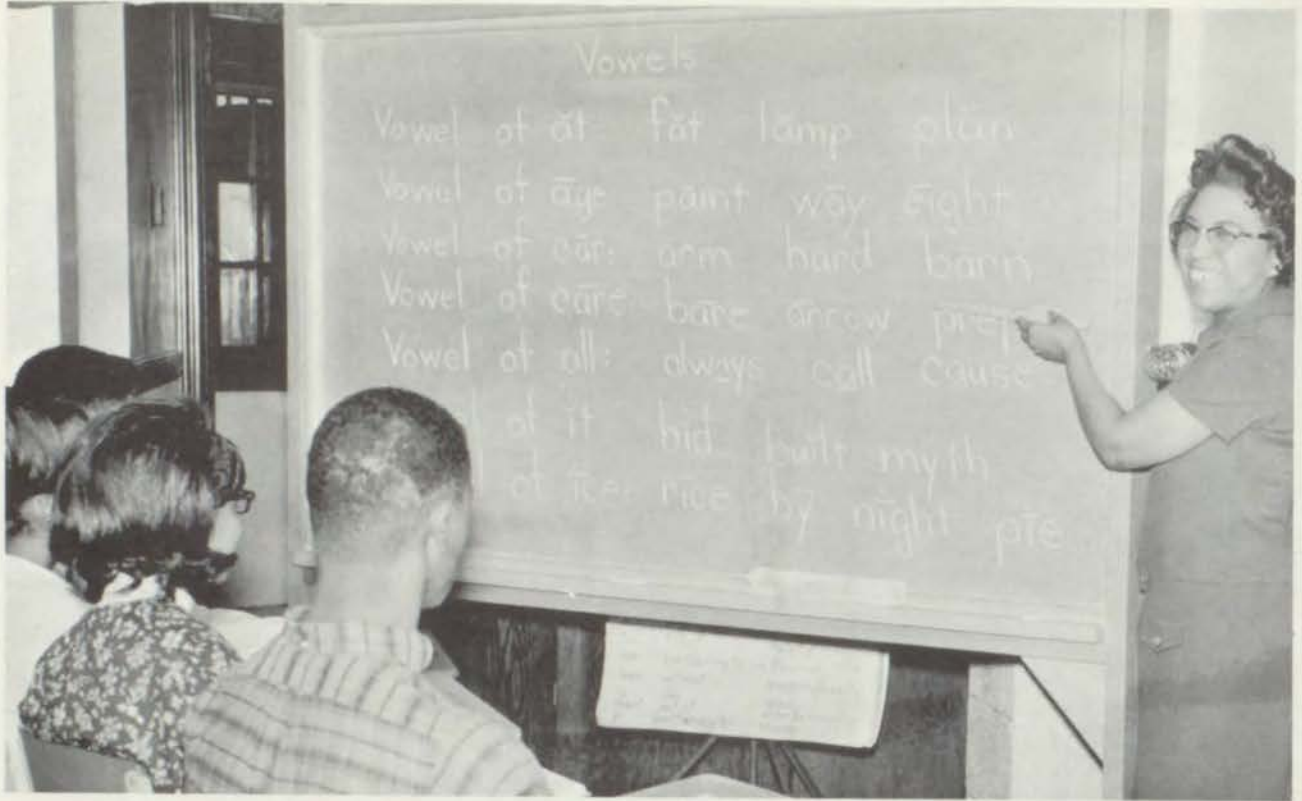 Vowels
Vowel of ăt: făt lămp plăn
Vowel of āge pāint wāy eīght
Vowel of cär: arm hard barn
Vowel of cāre bāre ārrow
Vowel of all: always call cause
of it hid built myth
of īce: rīce bȳ nīght pīe